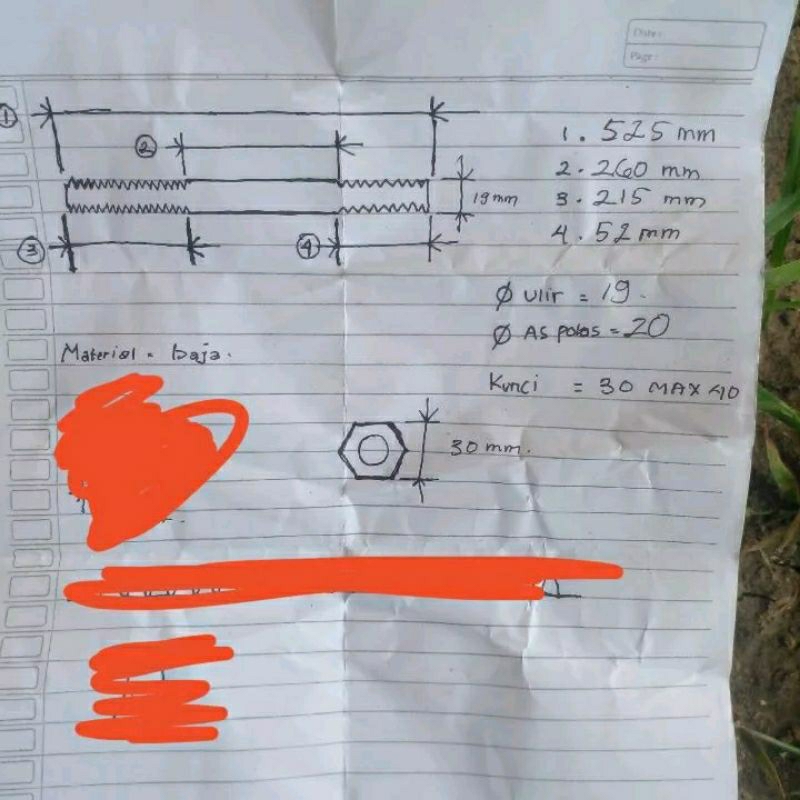 Date :
Page :
1
2
19 mm
3
4
1. 525 mm
2. 260 mm
3. 215 mm
4. 52 mm
Ø ulir = 19.
Ø As polos = 20
Material = baja.
Kunci = 30 MAX 40
30 mm.